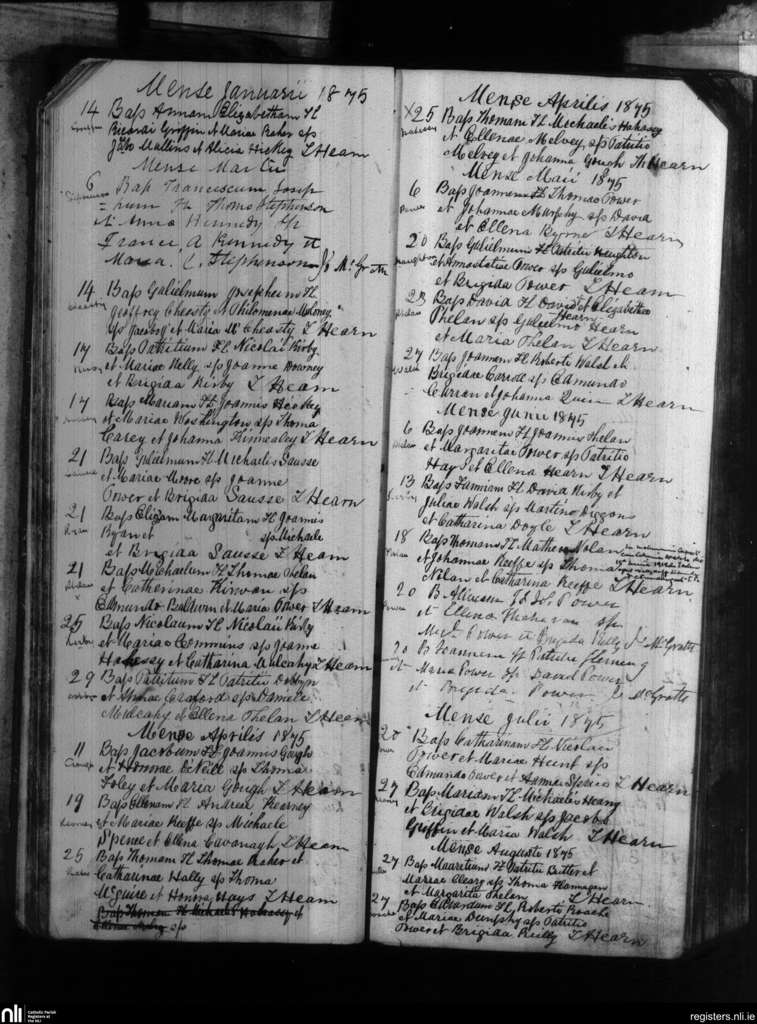 Mense Januarii 1875
14 Baps Annam Elizabetham Fl
Griffin Ricardi Griffin et Mariae Maher sps
Mullins et Alicia Hickey T Hearn
Mense Martii
6 Bap Franciscum Josep
= hum Fl Thoma Stephenson
et Anna Kennedy Sp
Franci A Kennedy et
Maria C. Stephenson J Mc Grath
14 Baps Gulielmum Josephum Fl
Geoffrey Cheasty et Philomenae Moloney
sps Jacobo et Maria Cheasty T Hearn
17 Baps Patritium Fl Nicolai Kirby
Kirby et Mariae Kelly sps Joanne Downey
et Brigida Kirby T Hearn
17 Baps Mariam Fl Joannis Hickey
et Mariae Washington sps Thoma
Carey et Johanna Kinnealey T Hearn
21 Baps Gulielmum Fl Michaelis Sausse
et Mariae Moore sps Joanne
Power et Brigida Sausse T Hearn
21 Baps Elizam Margaritam Fl Joannis
Ryan Ryan et sps Michaele
et Brigida Sausse T Hearn
21 Baps Michaelum Fl Thomae Phelan
Phelan et Catherinae Kirwan sps
Edmundo Baldwin et Maria Power T Hearn
25 Baps Nicolaum Fl Nicolaii Kirby
Kirby et Mariae Commins sps Joanne
Hahessy et Catharina Mulcahy T Hearn
29 Baps Patritium Fl Patritii
et Crawford sps Daniele
Mulcahy et Ellena Phelan T Hearn
Mense Aprilis 1875
11 Baps Jacobum Fl Joannis Gough
Gough et Honorae O'Neill sps Thoma
Foley et Maria Gough T Hearn
19 Baps Ellenam Fl Andreae Kearney
Kearney et Mariae Keeffe sps Michaele
Spence et Ellena Cavanagh T Hearn
25 Baps Thomam Fl Thomae Maher et
Maher Catharinae Hally sps Thoma
McGuire et Honora Hays T Hearn
Baps Thomam Fl Michaelis Hahessy et
sps
Mense Aprilis 1875
X25 Baps Thomam Fl Michaelis Hahessy
Hahessy et Ellenae Melvey, sps Patritio
Melvey et Johanna Gough Th Hearn
Mense Maii 1875
6 Baps Joannem Fl Thomae Power
Power et Johannae Murphy sps David
et Ellena Byrne T Hearn
20 Baps Gulielmum Fl Patritii Naughton
Naughton et Anastatiae Power sps Gulielmo
et Brigida Power T Hearn
23 Baps David Fl David et Elizabetha
Phelan Phelan sps Gulielmo Hearn
et Maria Phelan T Hearn
27 Baps Joannem Fl Roberti Walsh et
Walsh Brigidae Carroll sps Edmundo
Curran et Johanna Quinn T Hearn
Mense Junii 1875
6 Baps Joannem Fl Joannis Phelan
Phelan et Margaritae Power sps Patritio
Hays et Ellena Hearn T Hearn
13 Baps Fl David Kirby et
Kirby Juliae Walsh sps Martino Diggons
et Catharina Doyle T Hearn
18 Baps Thomam Fl Mathew Nolan
Nolan et Johannae Keeffe sps Thoma
Nolan et Catharina Keeffe T Hearn
20 B Aliciam Power
Power et Ellena sp.
Power et Brigida Kelly J McGrath
20 B Joannem Fl Patritii Fleming
et Maria Power sp David Power
et Brigida Power J McGrath
Mense Julii 1875
20 Baps Catharinam Fl Nicolai
Power Power et Mariae Hunt sps
Edmundo Power et T Hearn
27 Baps Mariam Fl Michaelis Heany
Heany et Brigidae Walsh sps Jacobo
Griffin et Maria Walsh T Hearn
Mense Augusti 1875
27 Baps Mauritium Fl Patritii Butler et
Mariae Cleary sps Thoma Flannagan
et Margarita Phelan T Hearn
27 Baps Edvardum Fl Roberti Roache
Roache et Mariae Dunphy sps Patritio
Power et Brigida Reilly T Hearn
nli Catholic Parish
Registers at
the NLI
registers.nli.ie